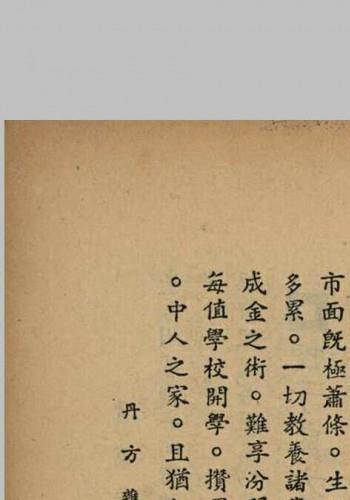 市面既極蕭條。生
多累。一切教養諸
成金之術。難享汾
每值學校開學。攢
。中人之家。且猶
丹方